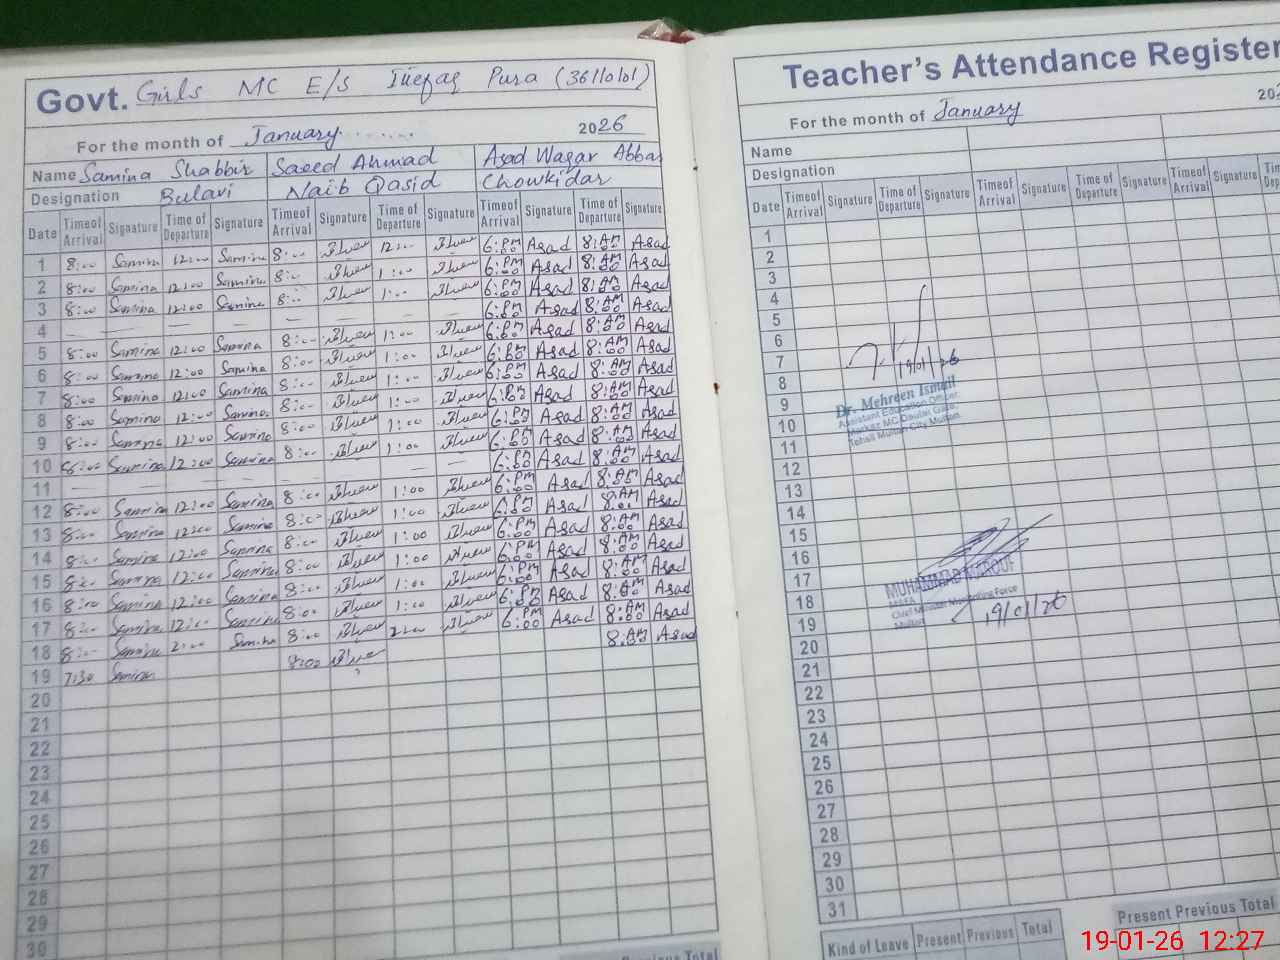 Govt. Girls MC E/S Pura (36110101)
For the month of January 2026
Name Samina Shabbir Saeed Ahmad Asad Waqar Abbas
Designation Bulavi Naib Qasid Chowkidar
Date Timeof Arrival Signature Time of Departure Signature Timeof Arrival Signature Time of Departure Signature Timeof Arrival Signature Time of Departure Signature
1 8:00 Samina 12:00 Samina 8:00 12:00 6:PM 00 Asad 8:AM 00 Asad
2 8:00 Samina 12:00 Samina 8:00 1:00 6:PM 00 Asad 8:AM 00 Asad
3 8:00 Samina 12:00 Samina 8:00 1:00 6:PM 00 Asad 8:AM 00 Asad
4 — — — — — — — 6:PM 00 Asad 8:AM 00 Asad
5 8:00 Samina 12:00 Samina 8:00 1:00 6:PM 00 Asad 8:AM 00 Asad
6 8:00 Samina 12:00 Samina 8:00 1:00 6:PM 00 Asad 8:AM 00 Asad
7 8:00 Samina 12:00 Samina 8:00 1:00 6:PM 00 Asad 8:AM 00 Asad
8 8:00 Samina 12:00 Samina 8:00 1:00 6:PM 00 Asad 8:AM 00 Asad
9 8:00 Samina 12:00 Samina 8:00 1:00 6:PM 00 Asad 8:AM 00 Asad
10 8:00 Samina 12:00 Samina 8:00 1:00 6:PM 00 Asad 8:AM 00 Asad
11 — — — — — — 6:PM 00 Asad 8:AM 00 Asad
12 8:00 Samina 12:00 Samina 8:00 1:00 6:PM 00 Asad 8:AM Asad
13 8:00 Samina 12:00 Samina 8:00 1:00 6:PM 00 Asad 8:AM 00 Asad
14 8:00 Samina 12:00 Samina 8:00 1:00 6:PM 00 Asad 8:AM 00 Asad
15 8:00 Samina 12:00 Samina 8:00 1:00 6:PM 00 Asad 8:AM 00 Asad
16 8:00 Samina 12:00 Samina 8:00 1:00 6:PM 00 Asad 8:AM 00 Asad
17 8:00 Samina 12:00 Samina 8:00 1:00 6:PM 00 Asad 8:AM 00 Asad
18 8:00 Samina 2:00 Samina 8:00 2:00 6:PM 00 Asad 8:AM 00 Asad
19 7:30 Samina 8:00 8:AM 00 Asad
20
21
22
23
24
25
26
27
28
29
30
Previous Total
Teacher's Attendance Register
For the month of January 202
Name
Designation
Date Timeof Arrival Signature Time of Departure Signature Timeof Arrival Signature Time of Departure Signature Timeof Arrival Signature
1
2
3
4
5
6
7
8
9
10
11
12
13
14
15
16
17
18
19
20
21
22
23
24
25
26
27
28
29
30
31
19/01/26
Dr. Mehreen Ismail
Assistant Education Officer
Markaz MC Daulat Gate
Tehsil Multan City Multan
MUHAMMAD MAROUF
Chief Minister Monitoring Force
Multan
19/01/26
Kind of Leave Present Previous Total
Present Previous Total
19-01-26 12:27